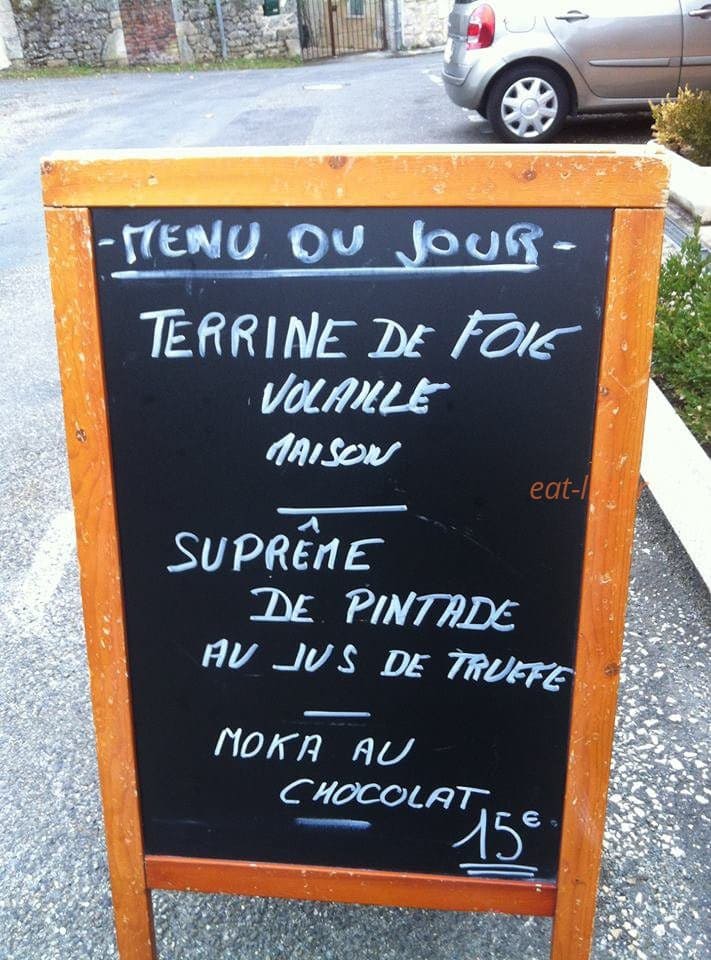 - MENU DU JOUR -
TERRINE DE FOIE
VOLAILLE
MAISON
SUPRÊME
DE PINTADE
AU JUS DE TRUFFE
MOKA AU
CHOCOLAT
15€